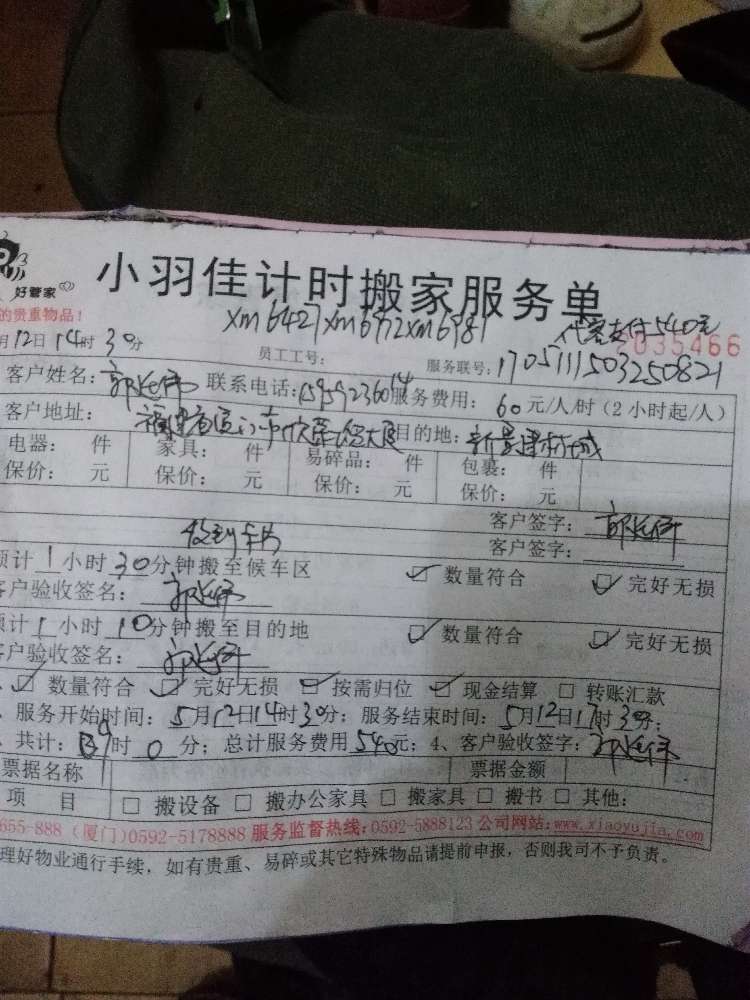 好管家
小羽佳计时搬家服务单
的贵重物品！
xm6427xm6972xm6981
代客支付540元
2035466
月12日14时30分
员工工号：
服务联号：17051111503250821
客户姓名： 联系电话： 服务费用：60元/人/时（2小时起/人）
客户地址：福建省厦门市 大厦 目的地：新景建材城
电器： 件 家具： 件 易碎品： 件 包裹： 件
保价： 元 保价： 元 保价： 元 保价： 元
客户签字：
收到车号
客户签字：
预计1小时30分钟搬至候车区 ☑ 数量符合 ☑ 完好无损
客户验收签名：
预计1小时10分钟搬至目的地 ☑ 数量符合 ☑ 完好无损
客户验收签名：
☑ 数量符合 ☑ 完好无损 ☑ 按需归位 ☑ 现金结算 □ 转账汇款
、服务开始时间：5月12日14时30分；服务结束时间：5月12日17时30分；
、共计：9时0分；总计服务费用540元；4、客户验收签字：
票据名称 票据金额
项 目 □ 搬设备 □ 搬办公家具 □ 搬家具 □ 搬书 □ 其他：
655-888（厦门）0592-5178888 服务监督热线：0592-5888123 公司网站：www.xiaoyujia.com
理好物业通行手续，如有贵重、易碎或其它特殊物品请提前申报，否则我司不予负责。